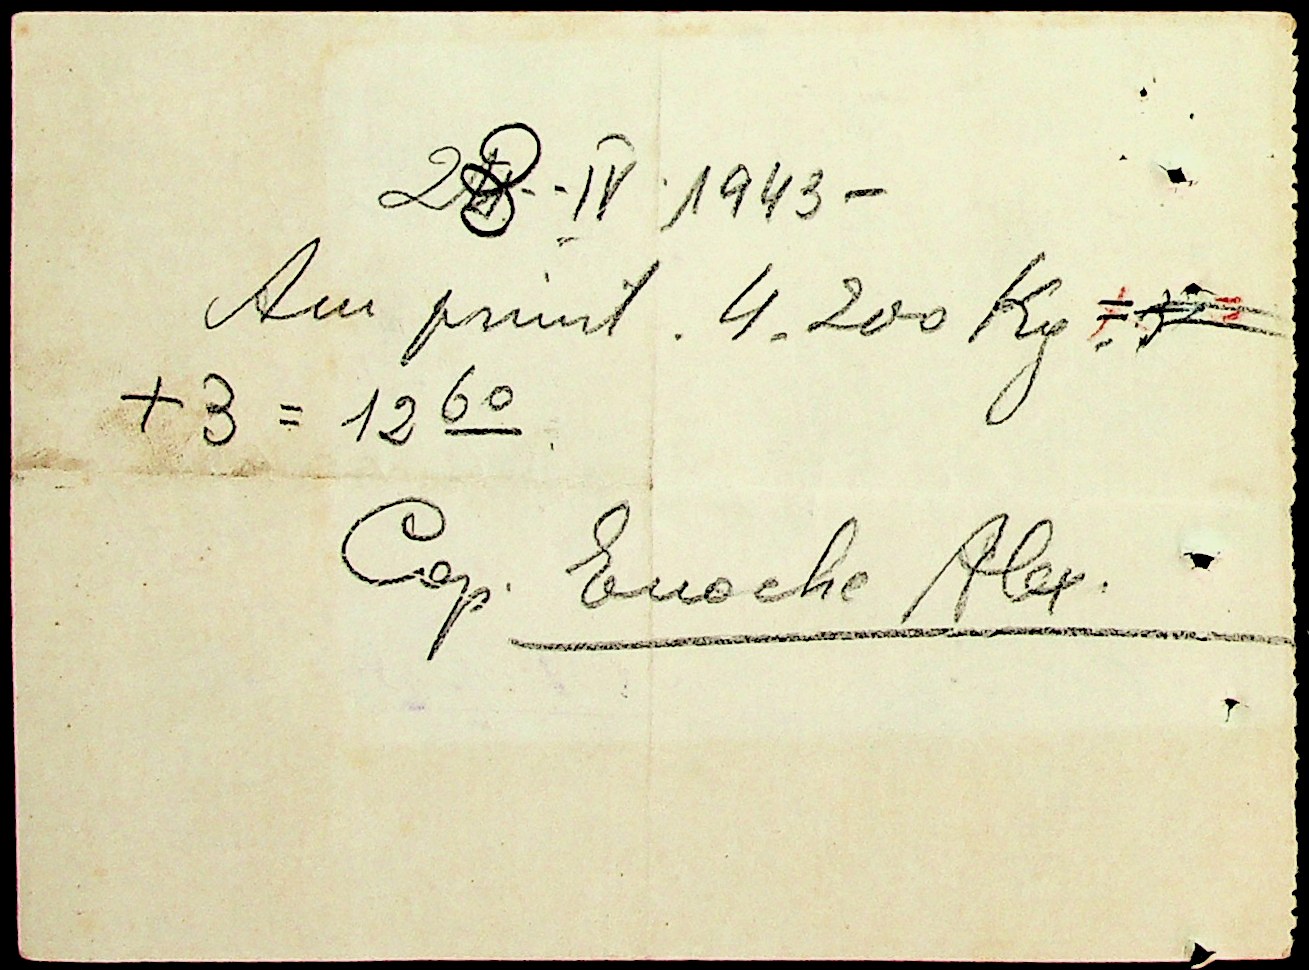 28 - IV 1943 -
Am primit . 4.200 Kg =
+ 3 = 12 60
Cap. Enache Alex.